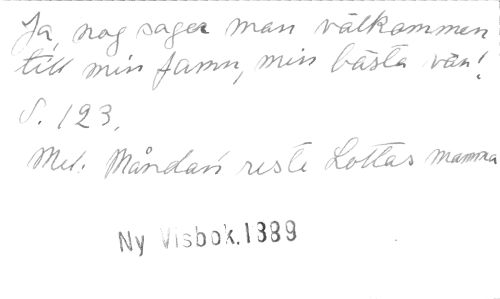 Ja, nog sager man välkommen
till min famn, min bästa vän!
S. 123.
Mel. Måndan reste Lottas mamma
Ny Visbok. 1889